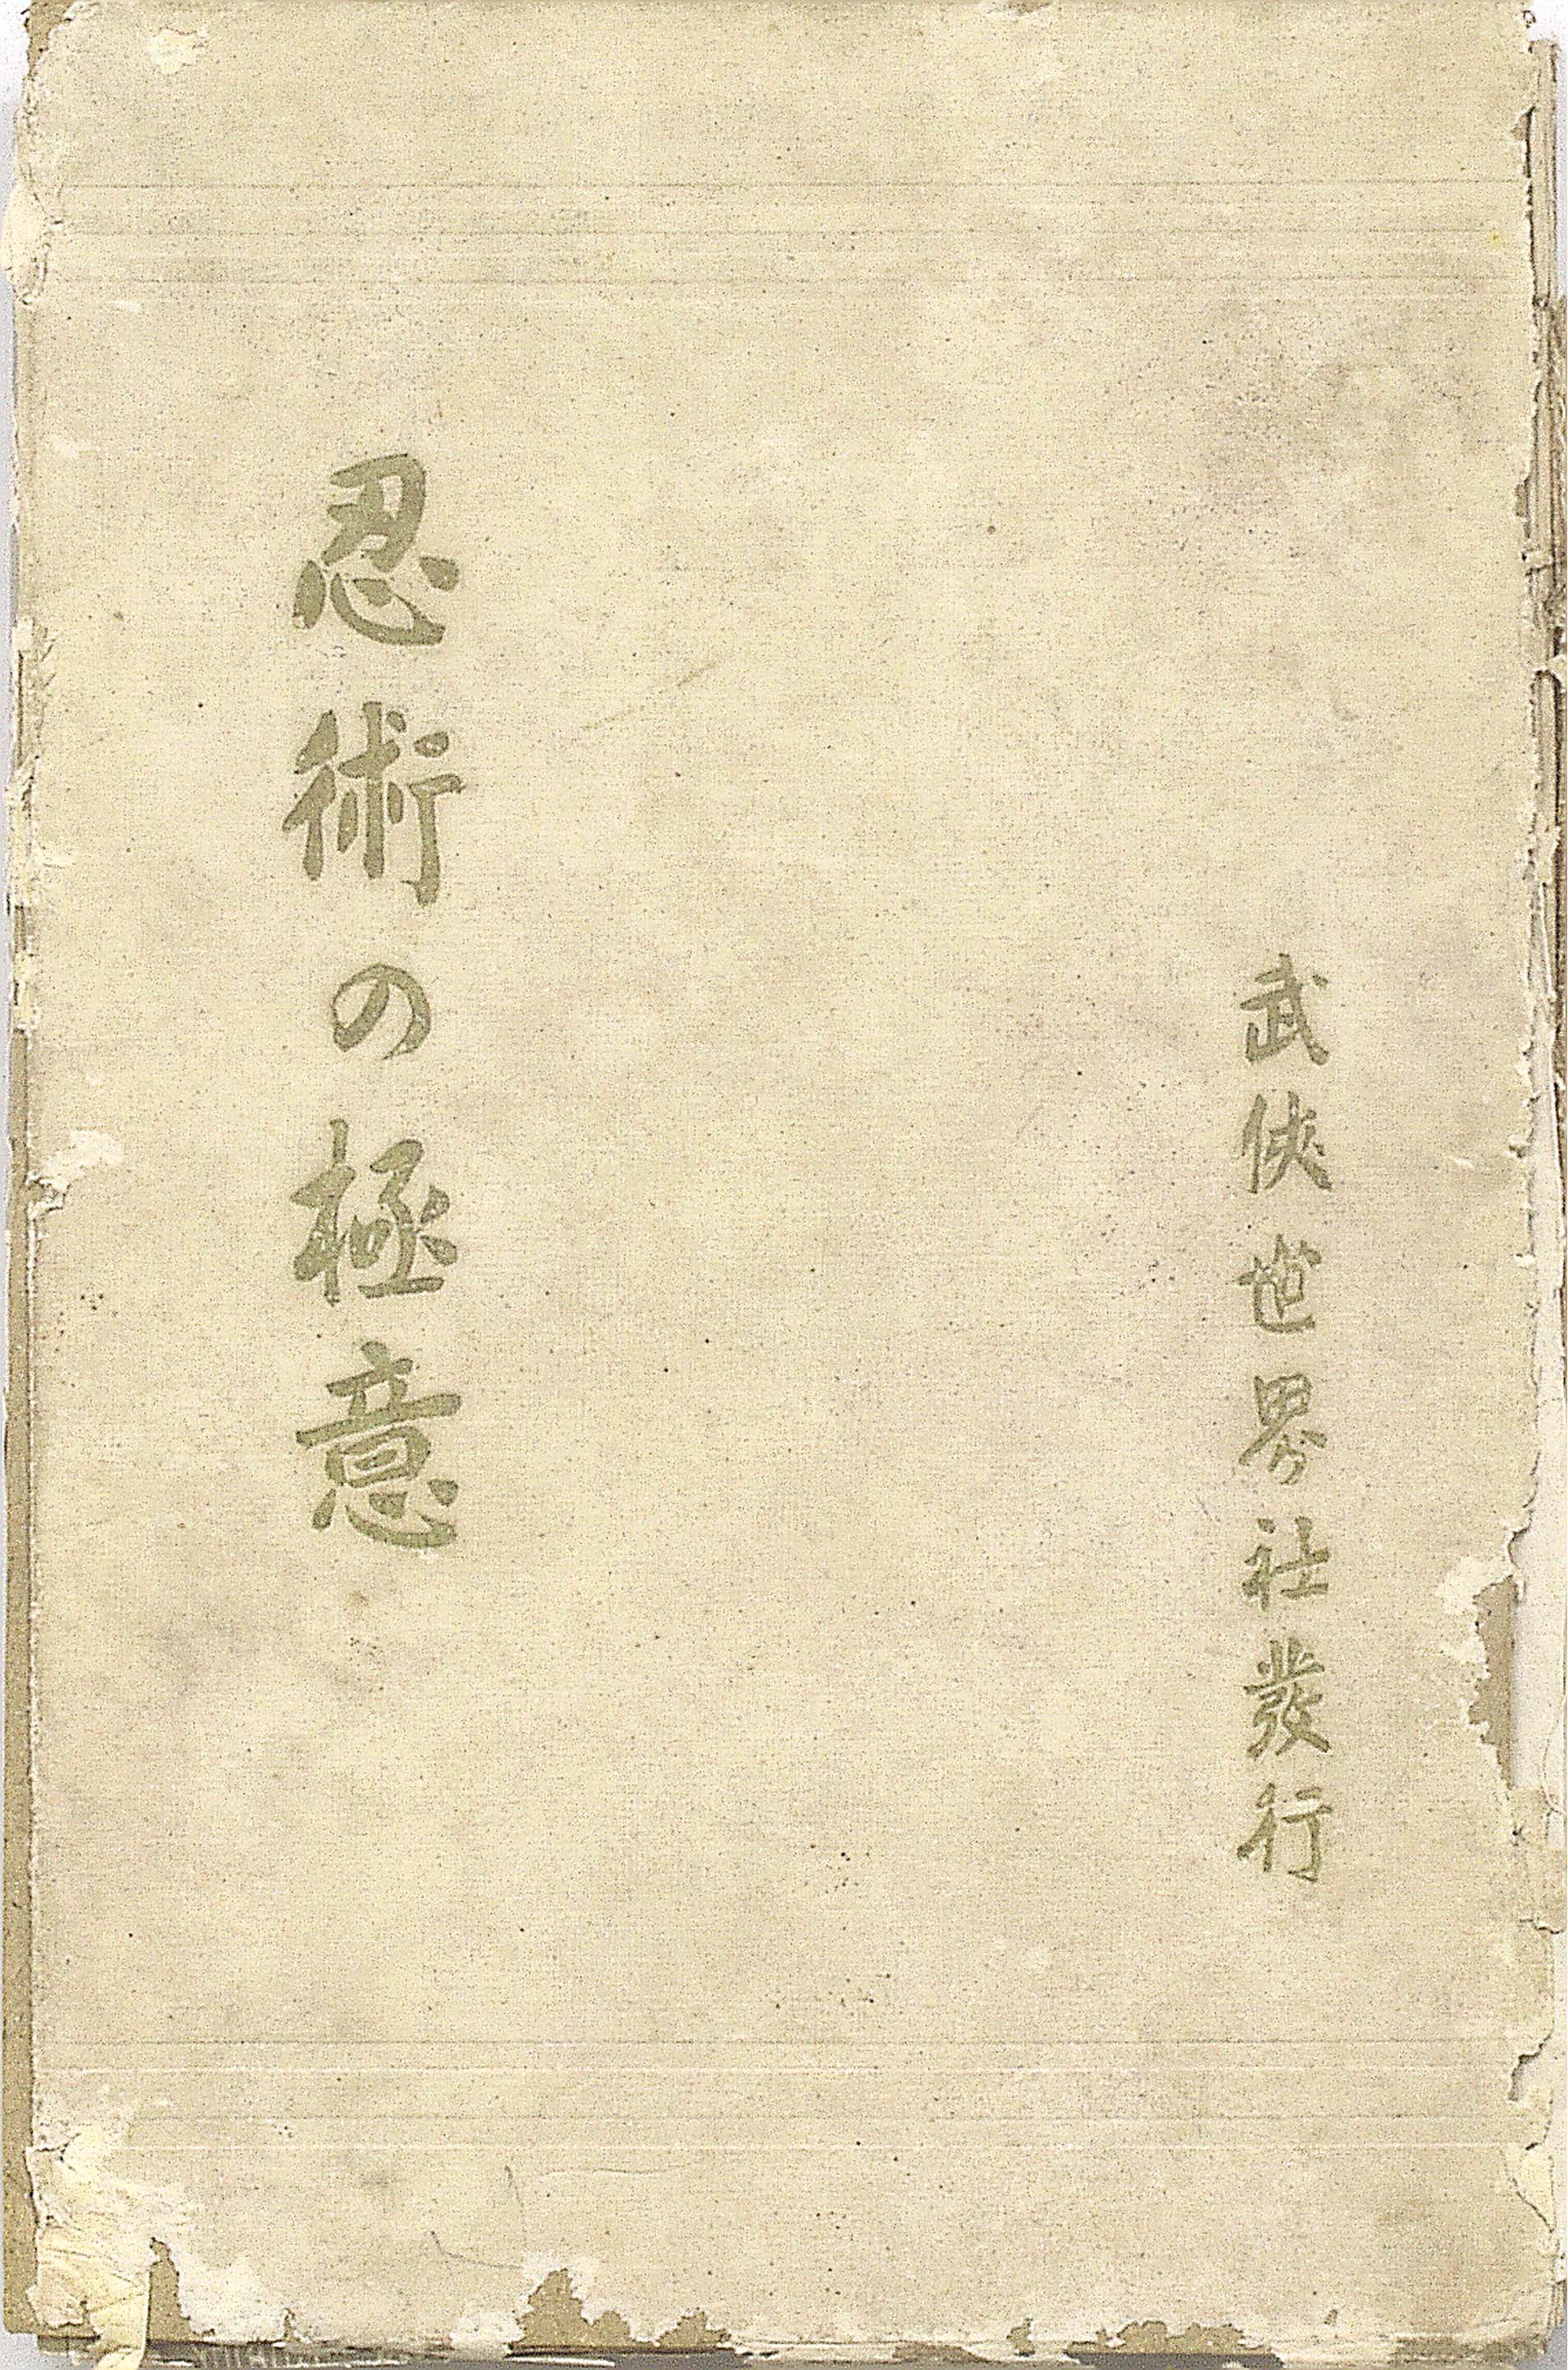 武侠世界社發行
忍術の極意